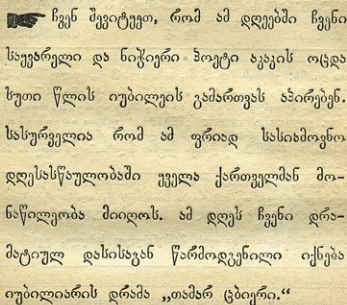 ჩვენ შევიტყეთ, რომ ამ დღეებში ჩვენი
საყვარელი და ნიჭიერი პოეტი აკაკის ოცდა
ხუთი წლის იუბილეის გამართვას აპირებენ.
სასურველია რომ ამ ფრიად სასიამოვნო
დღესასწაულობაში ყველა ქართველმან მო-
ნაწილეობა მიიღოს. ამ დღეს ჩვენი დრა-
მატიულ დასისაგან წარმოდგენილი იქნება
იუბილიარის დრამა „თამარ ცბიერი.“